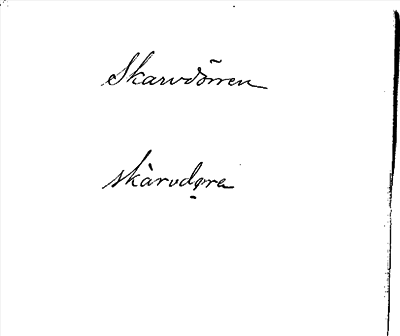 Skarvdörren
skàrvdøra